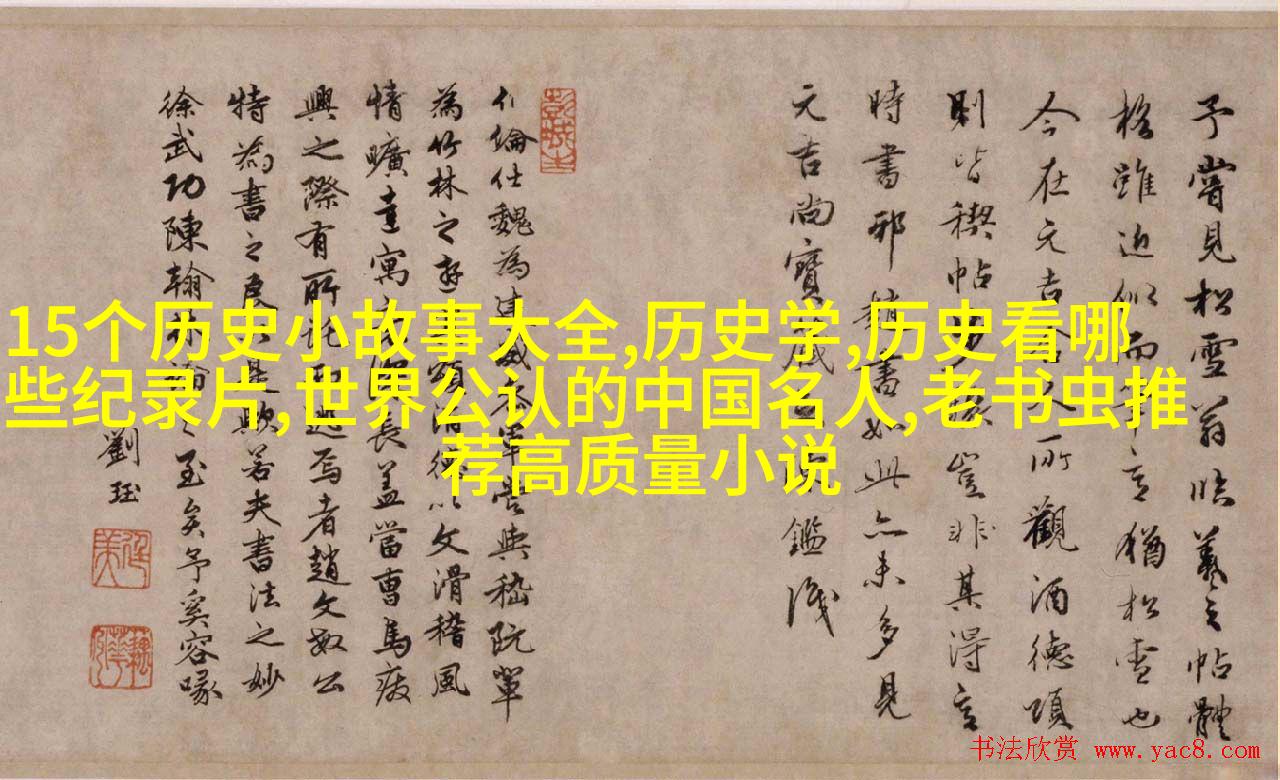 15个历史小故事大全,历史学,历史看哪
些纪录片,世界公认的中国名人,老书虫推
荐高质量小说
予嘗見松雪翁臨羲之帖體
格雖近似而
今在元吉
所觀酒德頌
則皆稧帖
豈非其得意
時書邪
書如此亦未多見
元吉尚寶
鑑識
伯倫仕魏為建威參軍嘗與嵇阮軰
為竹林之
以文滑稽風
情曠達寓
長盖當曹馬疲
興之際有所託而逃焉者趙文敏公
特為書之
是歟若夫書法之妙
徐武功陳翰林論之至矣予奚容喙
劉珏
书法欣赏 www.yac8.com